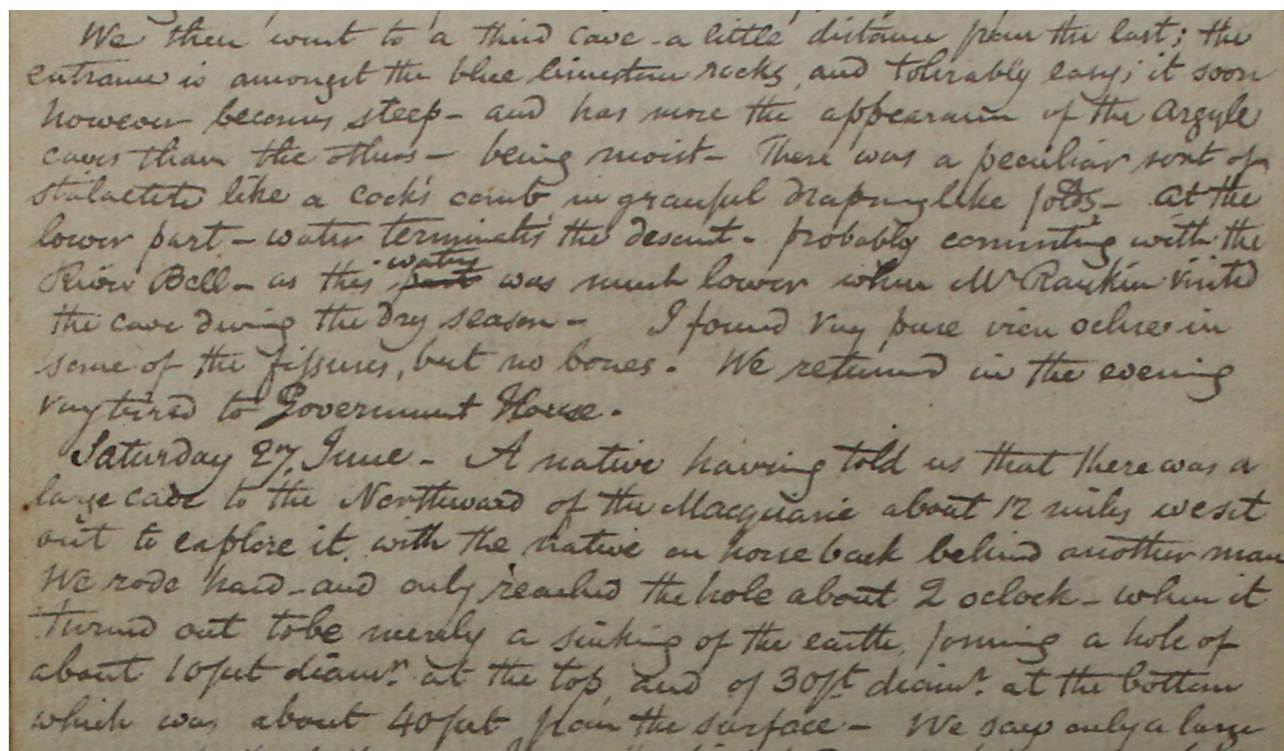 We then went to a third cave - a little distance from the last; the
entrance is amongst the blue limestone rocks, and tolerably easy; it soon
however becomes steep - and has more the appearance of the Argyle
caves than the others - being moist - There was a peculiar sort of
stalactite like a cock's comb in graceful drapery like folds - at the
lower part - water terminates the descent - probably connecting with the
River Bell - as this water part was much lower when Mr Rankin visited
the cave during the dry season - I found very pure ochre in
some of the fissures, but no bones. We returned in the evening
very tired to Government House.
Saturday 27 June - A native having told us that there was a
large cave to the Northward of the Macquarie about 12 miles we set
out to explore it, with the native on horseback behind another man
We rode hard - and only reached the hole about 2 oclock - when it
turned out to be merely a sinking of the earth, forming a hole of
about 10 feet diamr. at the top, and of 30ft. diamr. at the bottom
which was about 40 feet from the surface - We saw only a large